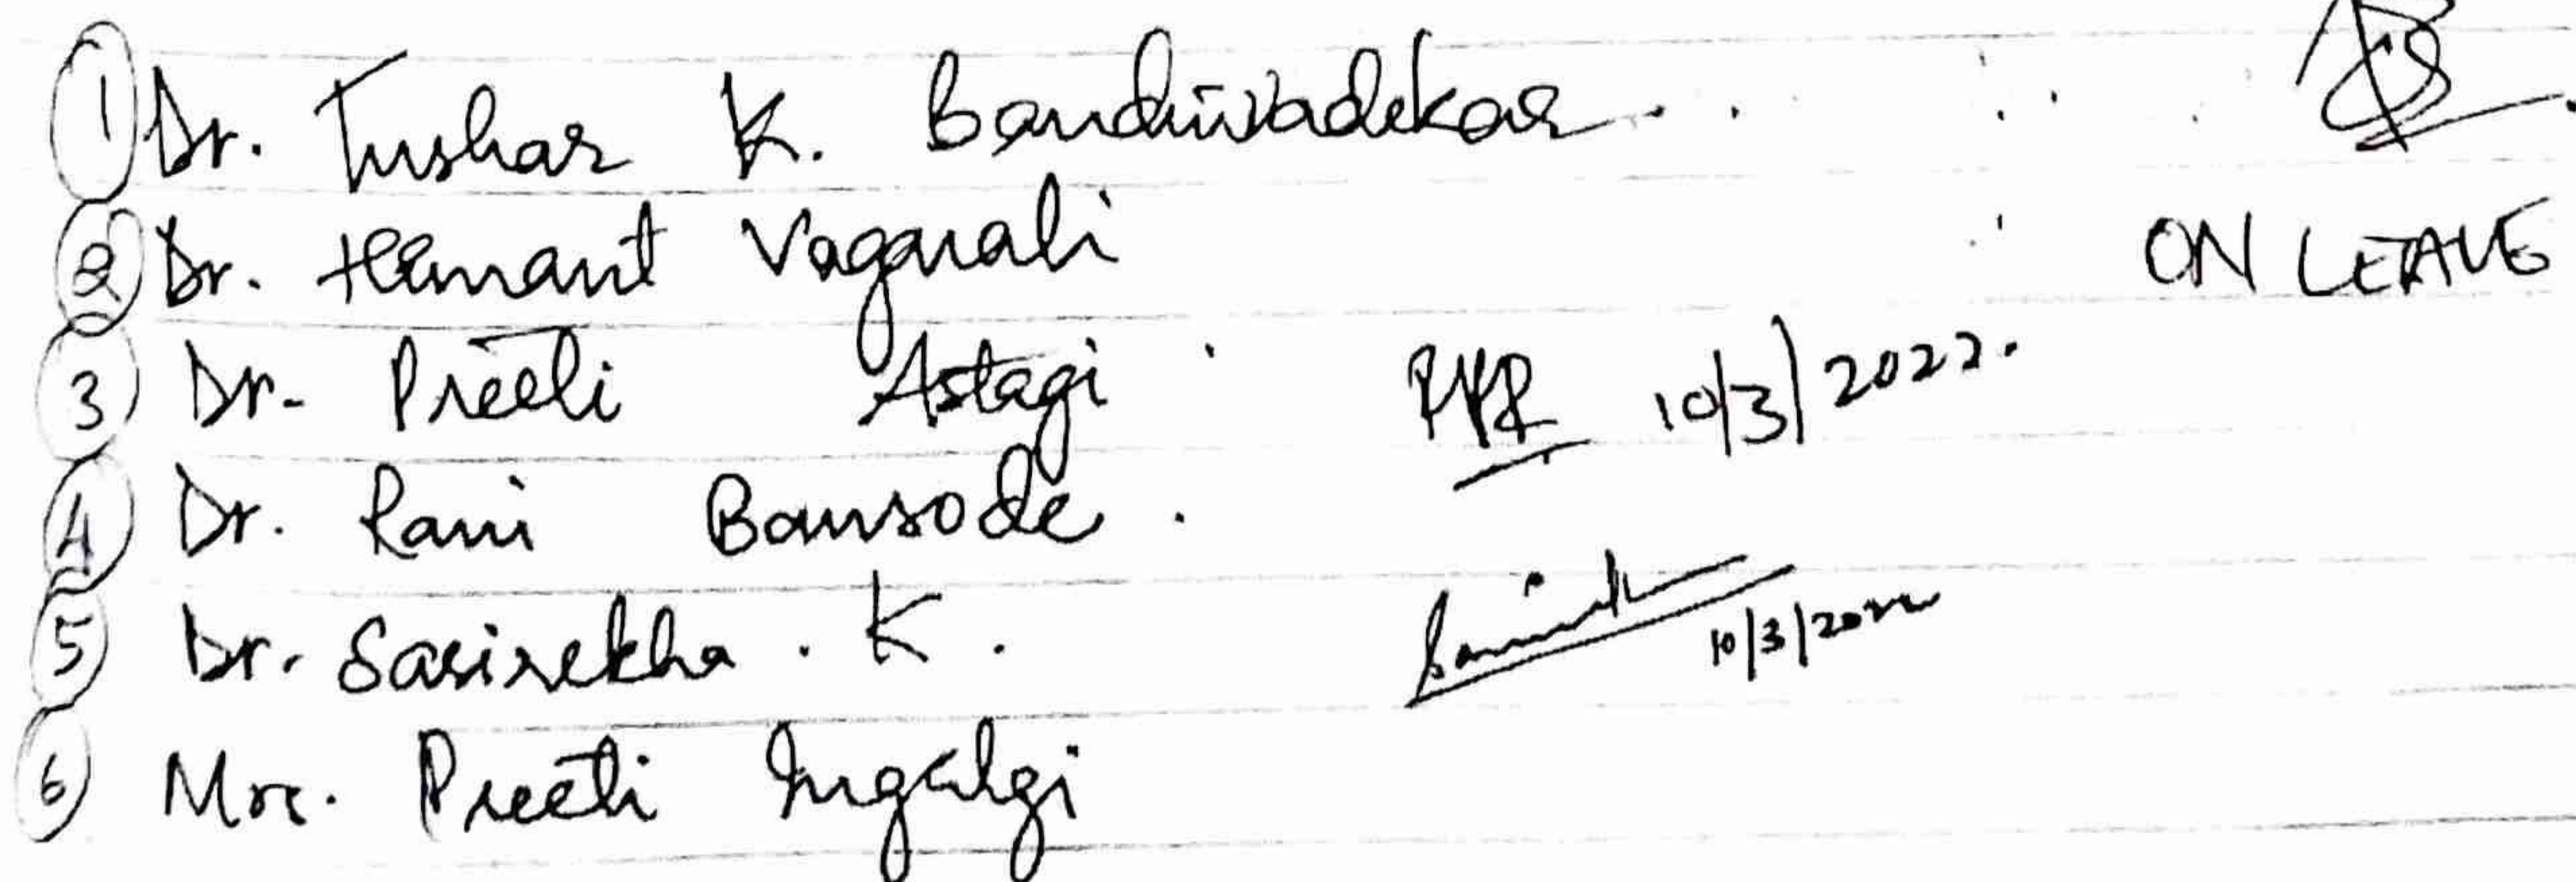 1 Dr. Tushar K. Bandiwadekar
2 Dr. Hemant Vagarali ON LEAVE
3 Dr. Preeti Astagi 10/3/2022.
4 Dr. Rani Bansode.
5 Dr. Sasirekha. K. 10/3/2022
6 Mrs. Preeti Ingalgi